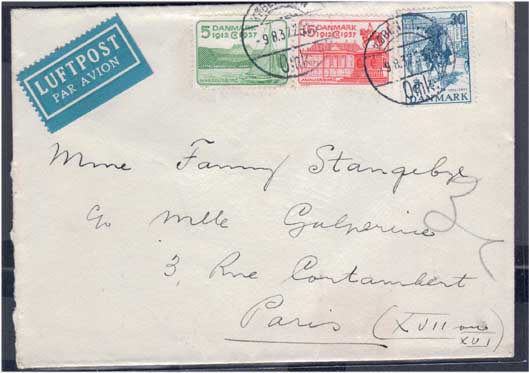 LUFTPOST
PAR AVION
5 DANMARK
1912 C 1937
15 DANMARK
1912 C 1937
30
DANMARK
9.8.37
Omk.
9.8.37
Omk.
Mme Fanny Stangebye
c/o Mlle Galperine
3, Rue Cortambert
Paris (XVII ou
XVI)